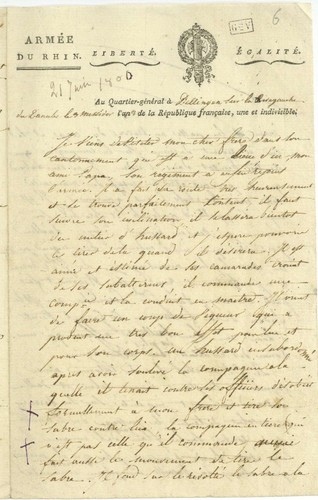 6
BEV
ARMÉE
DU RHIN. LIBERTÉ. ÉGALITÉ.
21 juin 1800
Au Quartier-général à Dillingen sur la rive gauche
du Danube le messidor l'an de la République française, une et indivisible.
Je viens de visiter mon cher frère dans son
cantonnement qui est à une lieue d'ici mon
ami Papa, son régiment a enfin rejoint
l'armée. il a fait sa route très heureusement
et se trouve parfaitement content. il faut
suivre son inclination il se lassera bientôt
du métier d'hussard et j'espère pouvoir
le tirer de là quand il le désirera. Il est
aimé et estimé de ses camarades craint
de ses subalternes, il commande une
compagnie et la conduit en maître. Il vient
de faire un coup de vigueur qui a
produit un très bon effet pour lui et
pour son corps. un hussard
après avoir soulevé la compagnie
quelle il tenait contre les officiers désobéit
formellement à mon frère et tire son
sabre contre lui. la compagnie entière qui
n'est pas celle qu'il commande
fait aussi le mouvement de tirer le
sabre. Il fond sur le révolté le sabre à la